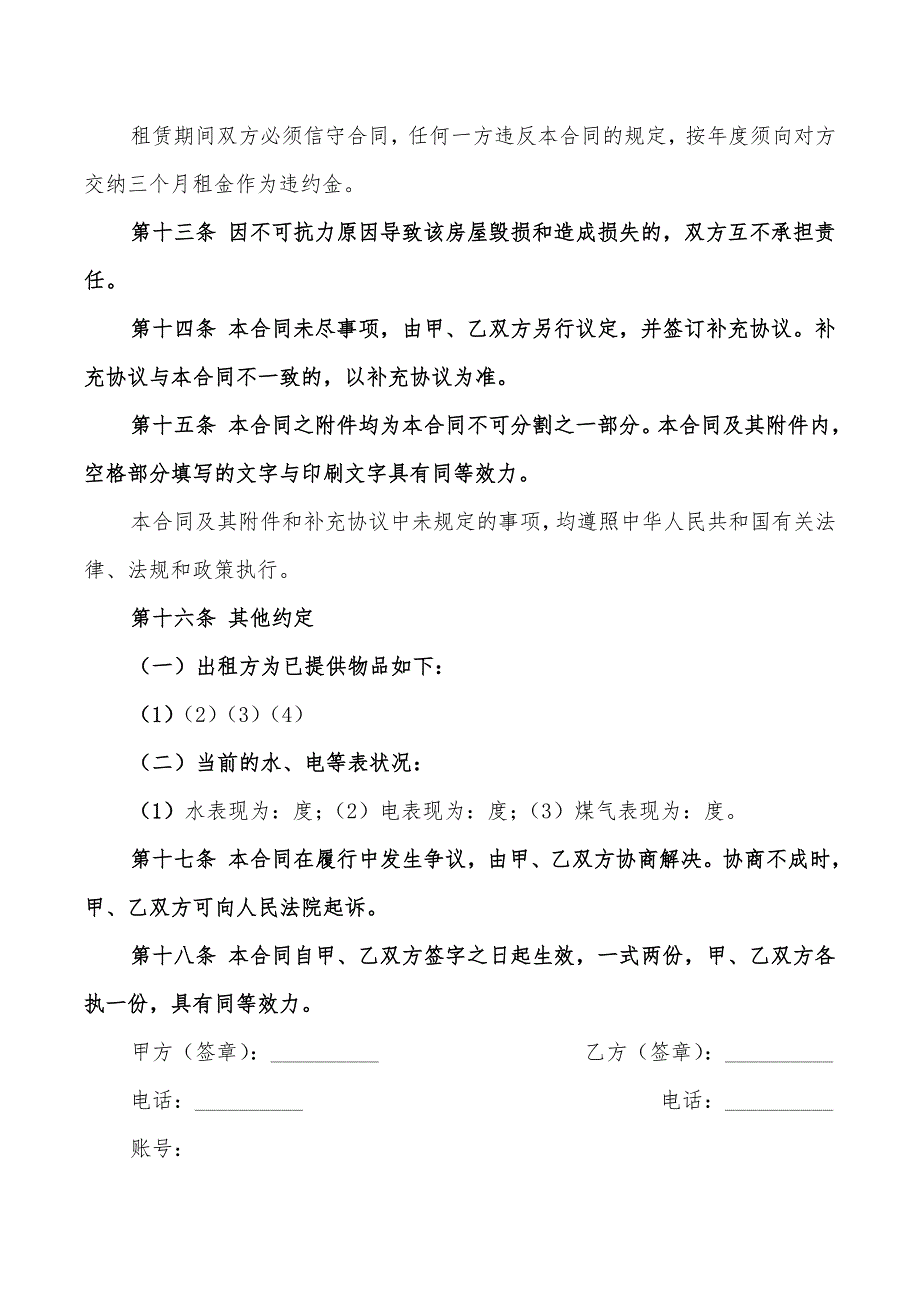 租赁期间双方必须信守合同，任何一方违反本合同的规定，按年度须向对方
交纳三个月租金作为违约金。
第十三条 因不可抗力原因导致该房屋毁损和造成损失的，双方互不承担责
任。
第十四条 本合同未尽事项，由甲、乙双方另行议定，并签订补充协议。补
充协议与本合同不一致的，以补充协议为准。
第十五条 本合同之附件均为本合同不可分割之一部分。本合同及其附件内，
空格部分填写的文字与印刷文字具有同等效力。
本合同及其附件和补充协议中未规定的事项，均遵照中华人民共和国有关法
律、法规和政策执行。
第十六条 其他约定
（一）出租方为已提供物品如下：
（1）（2）（3）（4）
（二）当前的水、电等表状况：
（1）水表现为：度；（2）电表现为：度；（3）煤气表现为：度。
第十七条 本合同在履行中发生争议，由甲、乙双方协商解决。协商不成时，
甲、乙双方可向人民法院起诉。
第十八条 本合同自甲、乙双方签字之日起生效，一式两份，甲、乙双方各
执一份，具有同等效力。
甲方（签章）：_________ 乙方（签章）：_________
电话：_________ 电话：_________
账号：